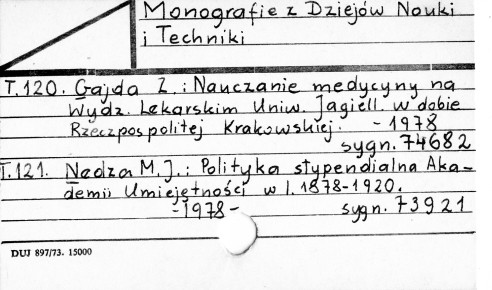 Monografie z Dziejów Nauki
i Techniki
T.120. Gajda Z.: Nauczanie medycyny na
Wydz. Lekarskim Uniw. Jagiell. w dobie
Rzeczpospolitej Krakowskiej. - 1978
sygn. 74682
T.121. Nędza M.J.: Polityka stypendialna Aka-
demii Umiejętności w l. 1878-1920.
-1978- sygn. 73921
DUJ 897/73. 15000